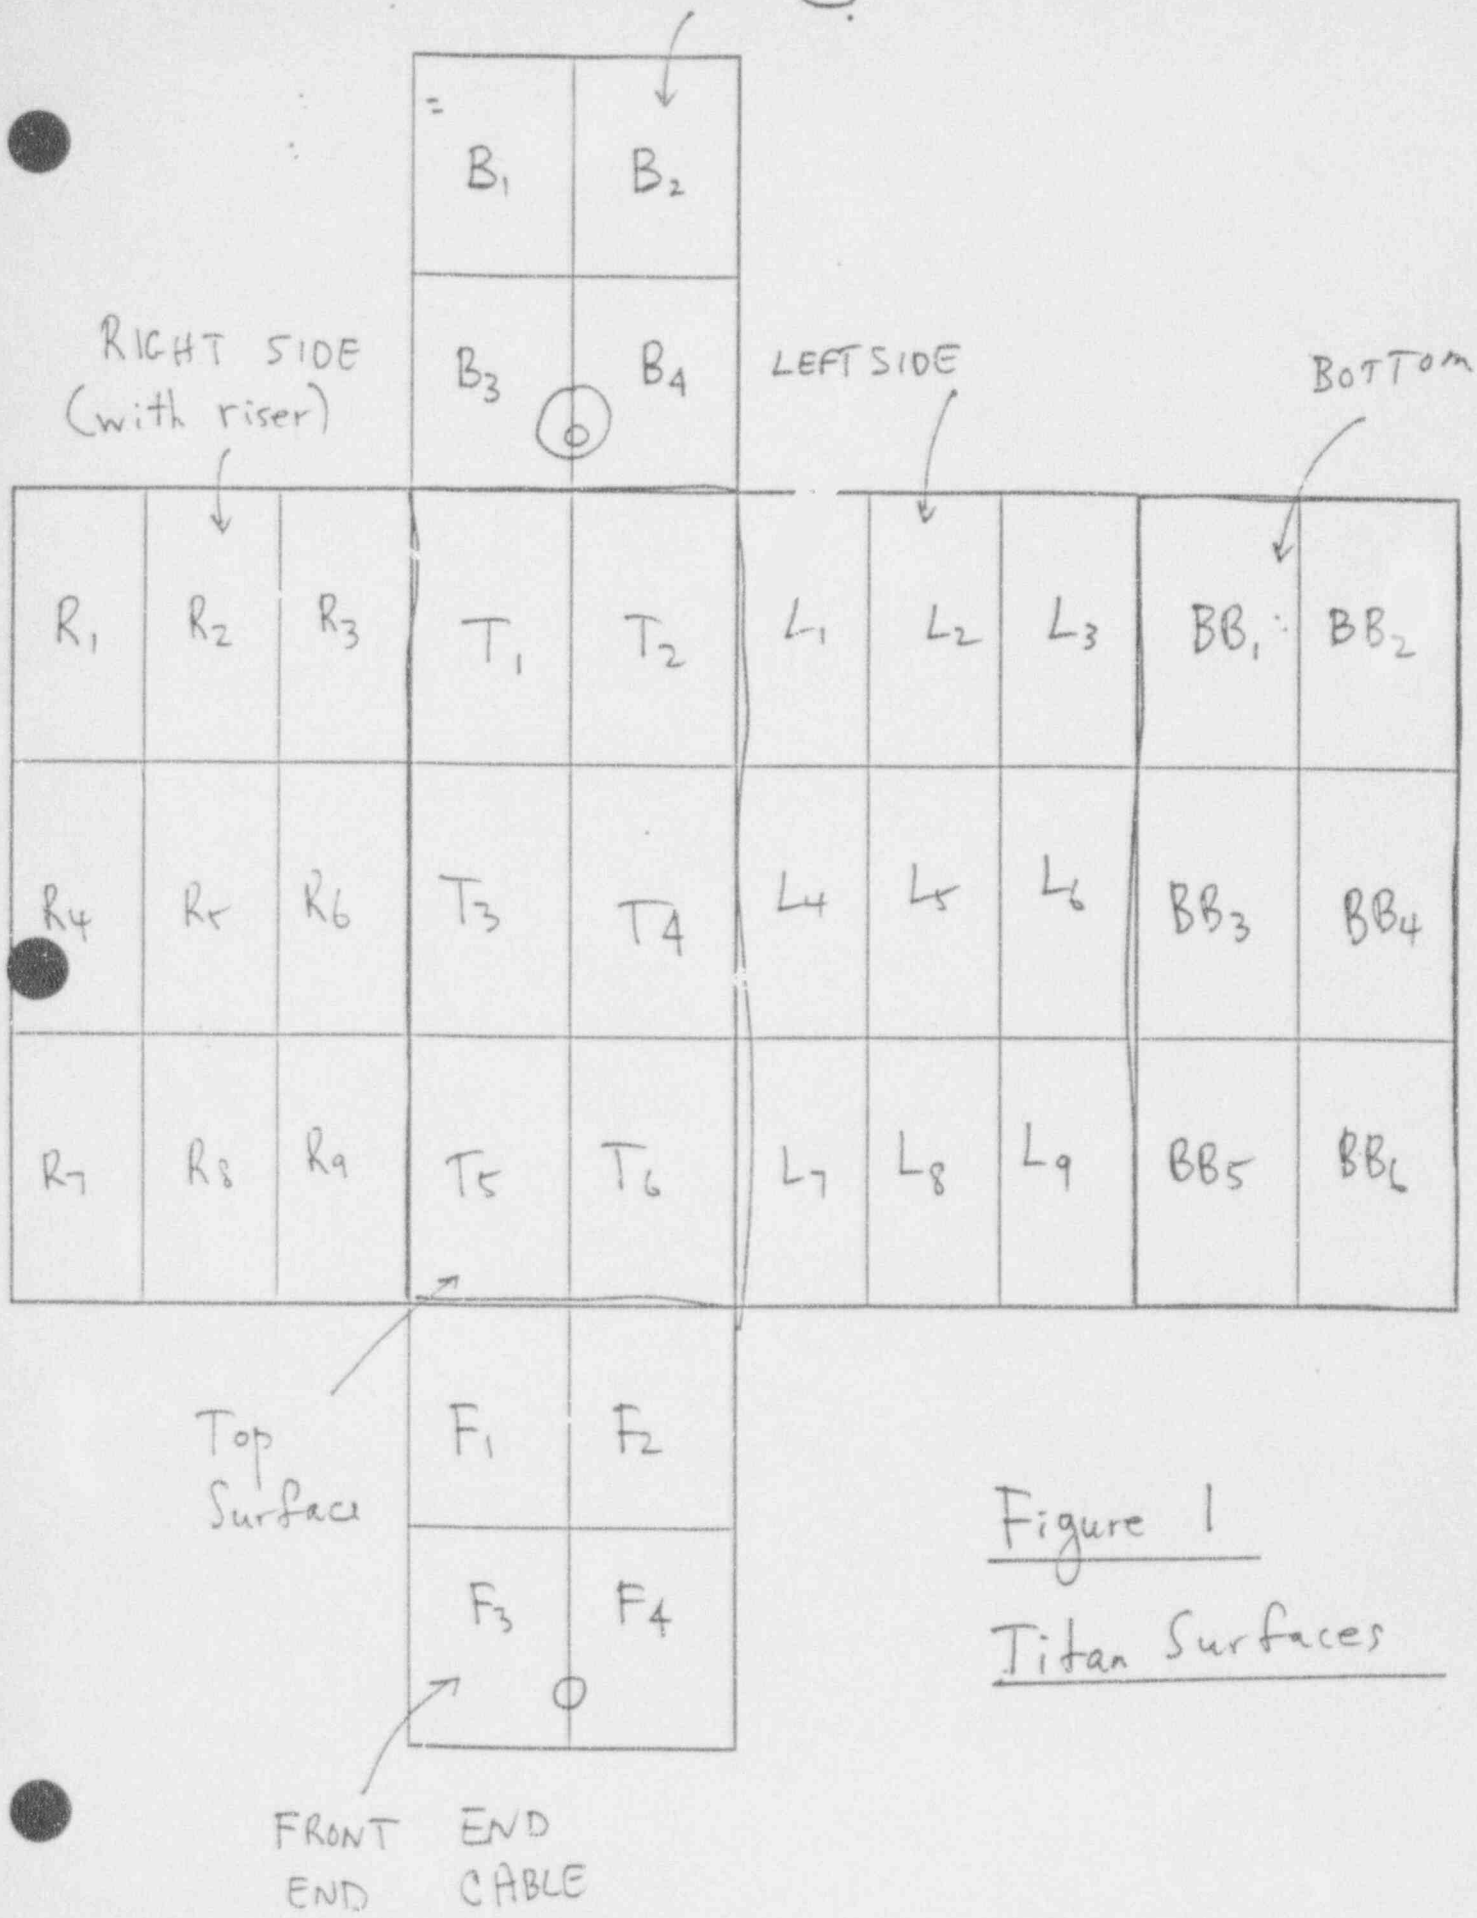 B₁ B₂
RIGHT SIDE
(with riser)
B₃ B₄
LEFT SIDE
BOTTOM
R₁ R₂ R₃ T₁ T₂ L₁ L₂ L₃ BB₁ BB₂
R4 R5 R6 T3 T4 L4 L5 L6 BB3 BB4
R7 R8 R9 T5 T6 L7 L8 L9 BB5 BB6
Top
Surface
F₁ F₂
F₃ F₄
Figure 1
Titan Surfaces
FRONT END
END CABLE